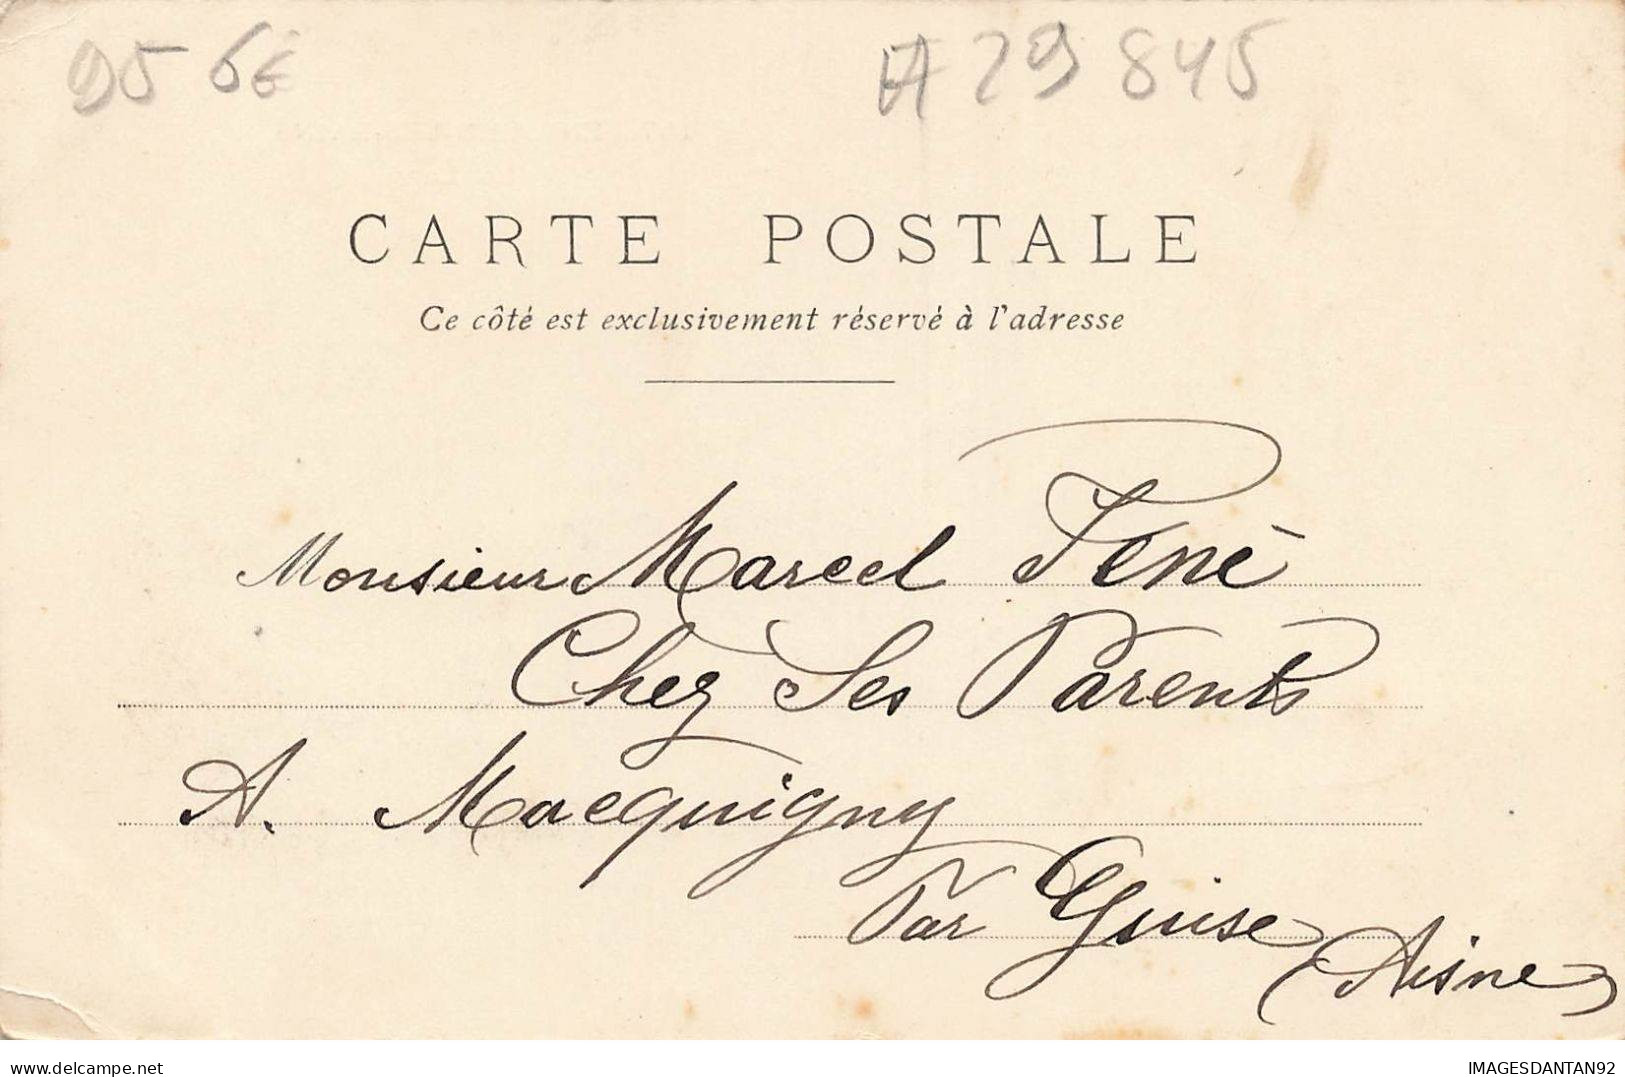 95 6€
A 29 845
CARTE POSTALE
Ce côté est exclusivement réservé à l'adresse
Monsieur Marcel
Chez Ses Parents
A. Macquigny
Par Guise
(Aisne)
delcampe.net
IMAGESDANTAN92